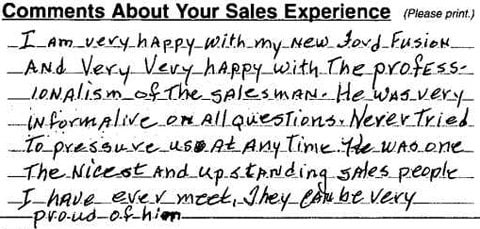 Comments About Your Sales Experience (Please print.)
I Am very hAppy with my New Ford Fusion
AND Very Very hAppy with The profess-
ionAlism of The sAlesmAn. He wAs very
informAlive on All questions. Never Tried
To pressure us At Any Time. He wAs one
The Nicest And upstanding sAles people
I hAve ever meet, They CAn be very
proud of him